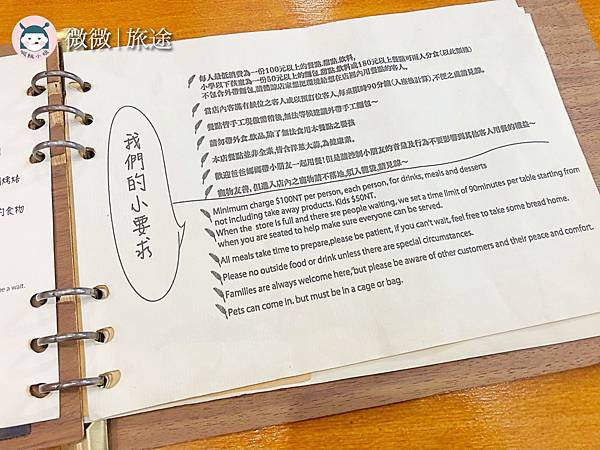 微微|旅途
我們的小要求
每人最低消費為一份100元以上的餐點,甜點,飲料,
小學以下孩童為一份50元以上的麵包,甜點,飲料或180元以上餐點可兩人分食(以此類推)
不包含外帶麵包,請體諒店家想把環境給想在店裡內用餐點的客人。
當店內客滿有候位之客人或以預訂位客人,每桌限時90分鐘(入座後計算),不便之處請見諒。
餐點皆手工現做需稍後,如在等候建議外帶手工麵包~
請勿帶外食,飲品,除了無法食用本餐點之嬰孩
本店餐點並非全素,皆含洋蔥大蒜,為健康素。
歡迎爸爸媽媽帶小朋友一起用餐!但是請控制小朋友的音量及行為不要影響到其他客人用餐的權益~
寵物友善,但進入店內之寵物請不落地,須入籠袋,請見諒~
Minimum charge $100NT per person, each person, for drinks, meals and desserts
not including take away products. Kids $50NT.
When the store is full and there are people waiting, we set a time limit of 90minutes per table starting from
when you are seated to help make sure everyone can be served.
All meals take time to prepare,please be patient, if you can't wait, feel free to take some bread home.
Please no outside food or drink unless there are special circumstances.
Families are always welcome here,"but please be aware of other customers and their peace and comfort.
Pets can come in. but must be in a cage or bag.
的食物
e a wait.